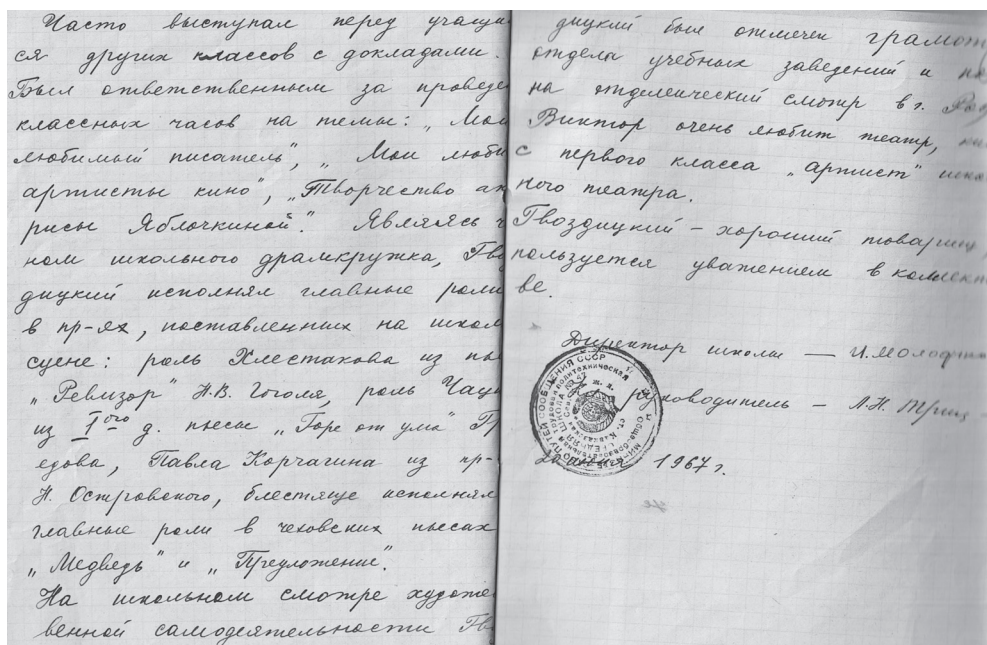 Часто выступал перед учащи
ся других классов с докладами.
Был ответственным за проведе
классных часов на темы: „Мой
любимый писатель", „Мои люби
артисты кино", „Творчество ак
рисы Яблочкиной". Являясь ч
ном школьного драмкружка, Гво
дицкий исполнял главные роли
в пр-ях, поставленных на школ
сцене: роль Хлестакова из пье
„Ревизор" Н.В. Гоголя, роль Чац
из I ого д. пьесы „Горе от ума" Гр
едова, Павла Корчагина из пр-
Н. Островского, блестяще исполнял
главные роли в чеховских пьесах
„Медведь" и „Предложение".
На школьном смотре художе
венной самодеятельности Гво
дицкий был отмечен грамот
отдела учебных заведений и по
на отделенческий смотр в г.
Виктор очень любит театр,
с первого класса „артист" шко
ного театра.
Гвоздицкий – хороший товарищ,
пользуется уважением в коллект
ве.
Директор школы —
руководитель – Л.Н.
1967 г.
МИНИСТЕРСТВО ПУТЕЙ СООБЩЕНИЯ СССР